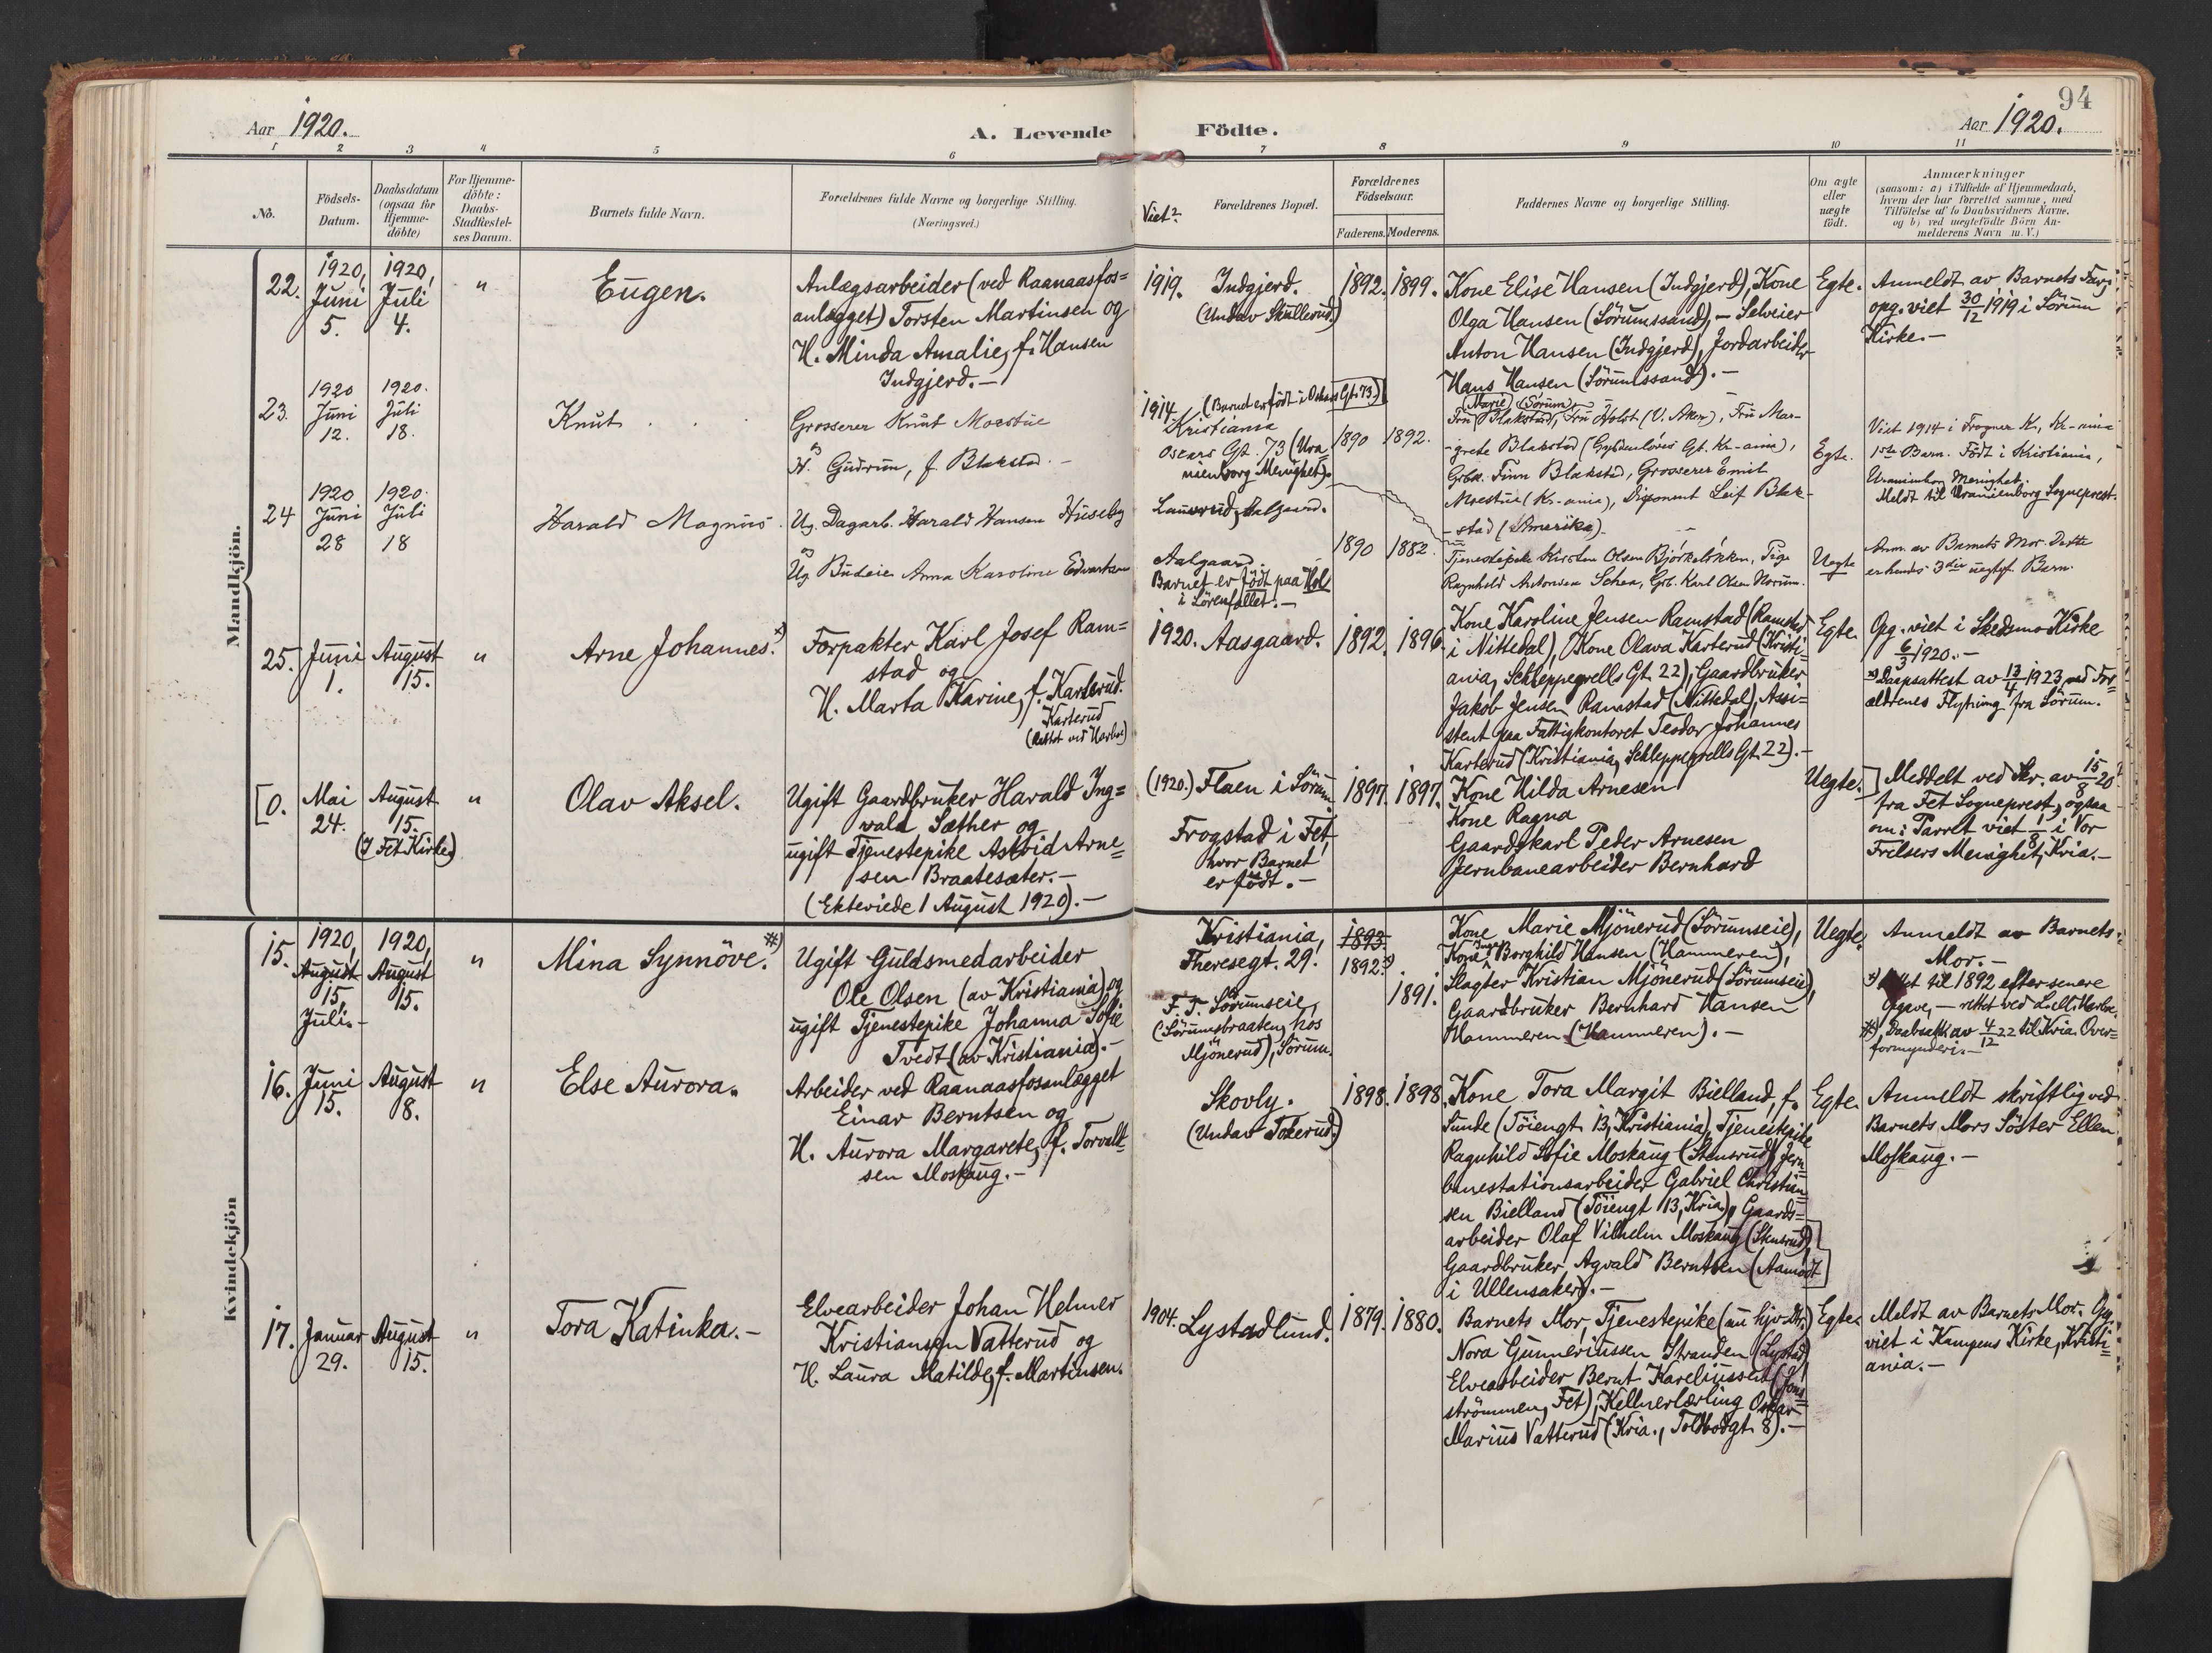 94
Aar 1920.
A. Levende Födte.
Aar 1920.
1 2 3 4 5 6 7 8 9 10 11
No.
Födsels-
Datum.
Daabsdatum
(ogsaa for
Hjemme-
döbte)
For Hjemme-
döbte:
Daabs-
Stadfæstel-
ses Datum.
Barnets fulde Navn.
Forældrenes fulde Navne og borgerlige Stilling.
(Næringsvei.)
Viet?
Forældrenes Bopæl.
Forældrenes
Födselsaar.
Faderens. Moderens.
Faddernes Navne og borgerlige Stilling.
Om ægte
eller
uægte
födt.
Anmærkninger
(saasom: a) i Tilfælde af Hjemmedaab,
hvem der har forrettet samme, med
Tilföielse af to Daabsvidners Navne.
og b) ved uægtefödte Börn An-
melderens Navn m. V.)
Mandkjön.
22.
1920,
Juni
5.
1920,
Juli
4.
"
Eugen.
Anlægsarbeider (ved Raanaasfos=
anlægget) Torsten Martinsen og
H. Minda Amalie, f. Hansen
Indgjerd.-
1919.
Indgjerd.
(Undav Skullerud.)
1892. 1899.
Kone Elise Hansen (Indgjerd), Kone
Olga Hansen (Sörumssand), - Selveier
Anton Hansen (Indgjerd), Jordarbeider
Hans Hansen (Sörumssand).-
Egte.
Anmeldt av Barnets Far,
opg. viet 30/12 1919 i Sörum
Kirke.-
23.
1920
Juni
12.
1920.
Juli
18.
Knut
Grosserer Knut Moestue
og
H. Gudrun, f. Blakstad.-
1914.
(Barnet er födt i Oskars Gt. 73)
Kristiania
Oscars Gt. 73 (Ura-
nienborg Menighet).
1890 1892.
(Marie) (Sörum)
Fru Blakstad, Fru Holst (V. Aker), Fru Mar-
grete Blakstad (Gyldenlöves Gt. Kr-ania),
Grbr. Finn Blakstad, Grosserer Emil
Moestue (Kr-ania), Disponent Leif Blak-
-stad (Amerika).
Egte.
Viet 1914 i Frogner K., Kr-ania
1ste Barn. Födt i Kristiania,
Uranienborg Menighet.
Meldt til Uranienborg Sogneprest.
24
1920
Juni
28
1920.
Juli
18
Harald Magnus.
Ug. Dagarb. Harald Hansen Huseby
og
Ug. Budeie Anna Karoline Edvartsen
Aalgaard.
Barnet er födt paa Hol
i Sörenfallet.-
1890 1882.
Tjenestepike Kirsten Olsen Björkeløkken, Pige
Ragnhild Antonsen Schea, Grb. Karl Olsen Norum.
Uegte
Anm. av Barnets Mor. Dette
er hendes 3die uegtef. Barn.
25.
Juni
1.
August
15.
"
Arne Johannes.*)
Forpakter Karl Josef Ram=
stad og
H. Marta Karine, f. Karterud.
Karterud
1920.
Aasgaard.
1892. 1896.
Kone Karoline Jensen Ramstad (Ramstad
i Nittedal), Kone Olava Karterud (Kristi-
ania, Schleppegrells Gt. 22), Gaardbruker
Jakob Jensen Ramstad (Nittedal), Assi=
stent paa Fattigkontoret Teodor Johannes
Karterud (Kristiania, Schleppegrells Gt. 22).-
Egte.
Opg. viet i Skedsmo Kirke
6/3 1920.-
*) Daapsattest av 13/4 1923 ved For=
ældrenes Flytning fra Sörum.
[0.
Mai
24.
August
15.
(I Fet Kirke)
"
Olav Aksel.
Ugift Gaardbruker Harald Ing=
vald Sæther og
ugift Tjenestepike Astrid Arne=
sen Braatesæter.-
(Ekteviede 1 August 1920).-
(1920.)
Flaen i Sörum.
Frogstad i Fet,
hvor Barnet
er födt.-
1897. 1897.
Kone Hilda Arnesen
Kone Ragna
Gaardskarl Peder Arnesen
Jernbanearbeider Bernhard
Uegte.]
Meddelt ved Skr. av 15/8 20
fra Fet Sogneprest, ogsaa
om: Parret viet 1/8 i Vor
Frelsers Menighet, Kria.-
Kvindekjön
15.
1920,
August
15,
Juli.-
1920,
August
15.
"
Mina Synnöve.#)
Ugift Guldsmedarbeider
Ole Olsen (av Kristiania) og
ugift Tjenestepike Johanna Sofie
Tvedt (av Kristiania).-
Kristiania,
Theresegt. 29.
F. T. Sörumseie,
(Sörumsbraaten, hos
Mjönerud), Sörum.
1893.
1892*)
1891.
Kone Marie Mjönerud (Sörumseie),
Kone Inga Borghild Hansen (Hammeren),
Slagter Kristian Mjönerud (Sörumseie),
Gaardbruker Bernhard Hansen
Hammeren (Hammeren).-
Uegte.
Anmeldt av Barnets
Mor.-
*) Rettet til 1892 efter senere
Opgave, - rettet ved
#) Daabsatt. av 4/12 22 til Kria. Over=
formynderi.-
16.
Juni
15.
August
8.
"
Else Aurora.
Arbeider ved Raanaasfosanlægget
Einar Berntsen og
H. Aurora Margarete, f. Torvald=
sen Moskaug.-
Skovly.
(Undav Tokerud.)
1898. 1898.
Kone Tora Margit Bielland, f.
Sunde (Töiengt. 13, Kristiania), Tjenestepike
Ragnhild Sofie Moskaug (Stensrud), Jern=
banestationsarbeider Gabriel Christian=
sen Bielland (Töiengt 13, Kria), Gaards=
arbeider Olaf Vilhelm Moskaug (Stensrud),
Gaardbruker Agvald Berntsen (Aamodt
i Ullensaker).-
Egte.
Anmeldt skriftlig ved
Barnets Mors Söster Ellen
Moskaug.-
17.
Januar
29.
August
15.
"
Tora Katinka.-
Elvearbeider Johan Helmer
Kristiansen Vatterud og
H. Laura Matilde, f. Martinsen.
1904.
Lystadlund.
1879. 1880.
Barnets Mor, Tjenestepike
Nora Gunneriussen Stranden (Lystad)
Elvearbeider Bernt Kareliussen
strömmen, Fet), Kellnerlærling Oskar
Marius Vatterud (Kria., Toldbodgt. 8).-
Egte.
Meldt av Barnets Mor. Opg.
viet i Kampens Kirke, Kristi=
ania.-